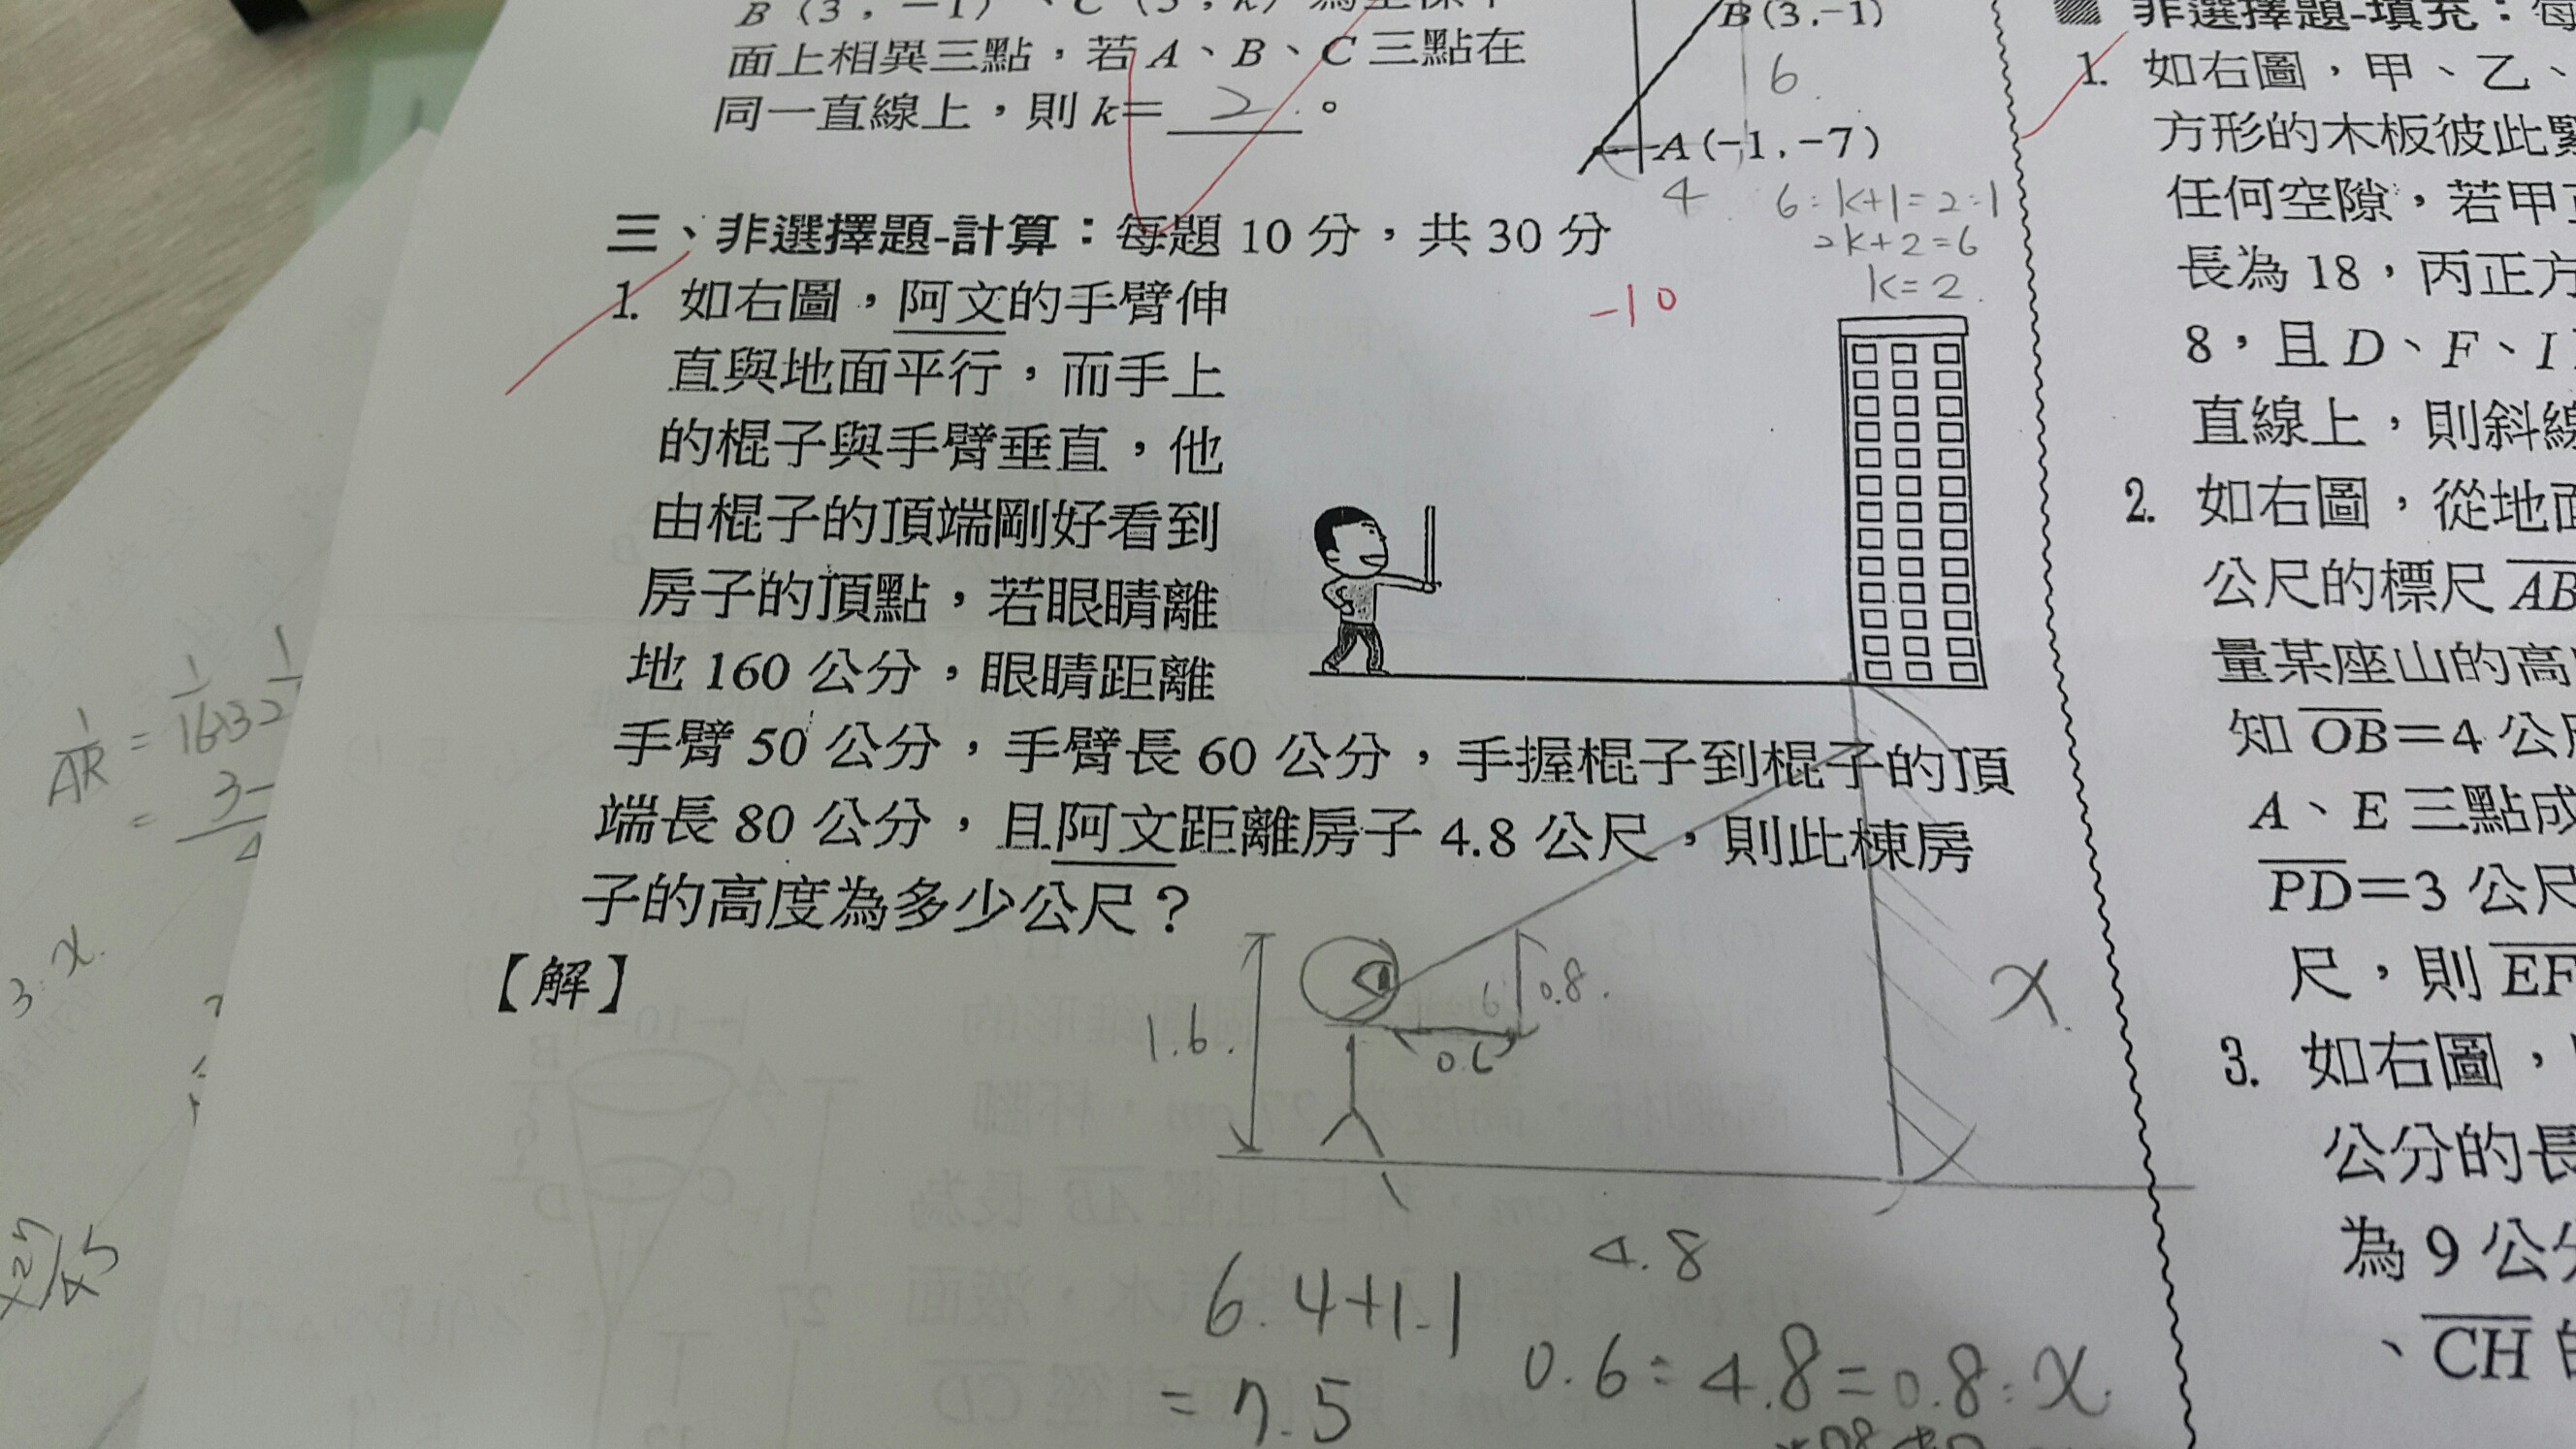 B(3,-1)、C(3,k)
面上相異三點,若A、B、C三點在
同一直線上,則k=2。
B(3,-1)
6
A(-1,-7)
4
6:k+1=2:1
2k+2=6
k=2
三、非選擇題-計算:每題10分,共30分
-10
1. 如右圖,阿文的手臂伸
直與地面平行,而手上
的棍子與手臂垂直,他
由棍子的頂端剛好看到
房子的頂點,若眼睛離
地160公分,眼睛距離
手臂50公分,手臂長60公分,手握棍子到棍子的頂
端長80公分,且阿文距離房子4.8公尺,則此棟房
子的高度為多少公尺?
【解】
1.6
0.8
0.6
x
4.8
6.4+1.1
=7.5
0.6:4.8=0.8:x
非選擇題-填充:每
1. 如右圖,甲、乙、
方形的木板彼此緊
任何空隙,若甲正
長為18,丙正方
8,且D、F、I
直線上,則斜線
2. 如右圖,從地面
公尺的標尺AB
量某座山的高
知OB=4公尺
A、E三點成
PD=3公尺
尺,則EF
3. 如右圖,
公分的長
為9公分
、CH的
1
AR
=
3:x